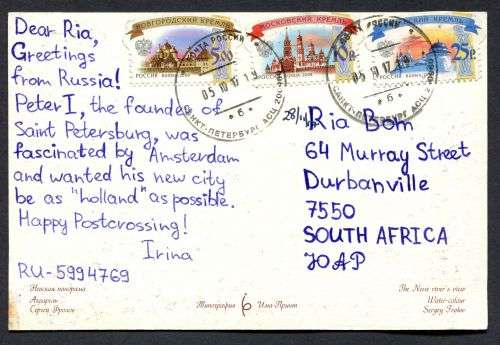 Dear Ria,
Greetings
from Russia!
Peter I, the founder of
Saint Petersburg, was
fascinated by Amsterdam
and wanted his new city
be as "holland" as possible.
Happy Postcrossing!
Irina
RU-5994769
НОВГОРОДСКИЙ КРЕМЛЬ
500
РОССИЯ
МОСКОВСКИЙ КРЕМЛЬ
10р
РОССИЯ
КРЕМЛЬ
25р
РОССИЯ
ПОЧТА РОССИИ
05 10 17 1
САНКТ-ПЕТЕРБУРГ АСЦ
* б *
05 10 17 1
САНКТ-ПЕТЕРБУРГ АСЦ
* б *
Ria Bom
64 Murray Street
Durbanville
7550
SOUTH AFRICA
ЮАР
Невская панорама
Акварель
Сергей
Типография
6
The Neva river's view
Water-colour
Sergey